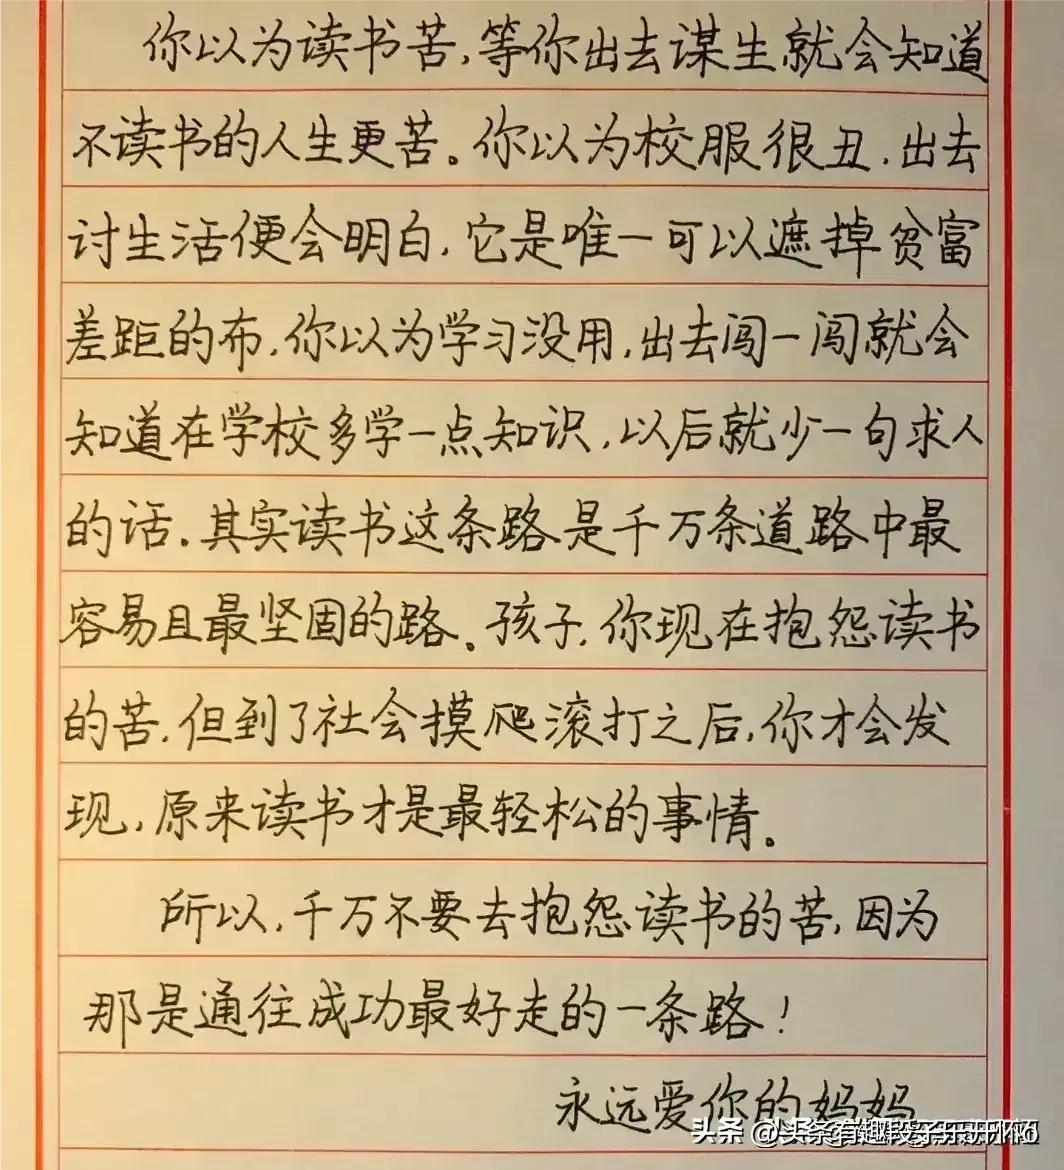 你以为读书苦,等你出去谋生就会知道
不读书的人生更苦。你以为校服很丑,出去
讨生活便会明白,它是唯一可以遮掉贫富
差距的布,你以为学习没用,出去闯一闯就会
知道在学校多学一点知识,以后就少一句求人
的话。其实读书这条路是千万条道路中最
容易且最坚固的路。孩子,你现在抱怨读书
的苦,但到了社会摸爬滚打之后,你才会发
现,原来读书才是最轻松的事情。
所以,千万不要去抱怨读书的苦,因为
那是通往成功最好走的一条路!
永远爱你的妈妈
头条 @头条有趣段子乐开怀